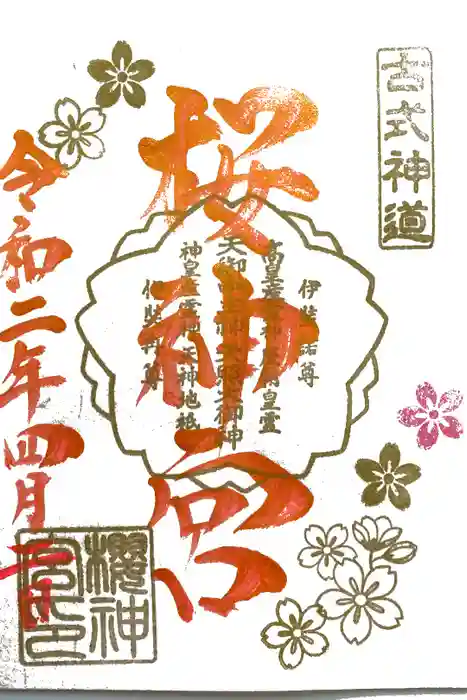 古式神道
桜神宮
伊弉諾尊
高皇産霊神 歴皇霊
天御中主神 天照大御神
神皇産霊神 天神地祇
伊弉冉尊
令和二年四月一日
櫻神宮印